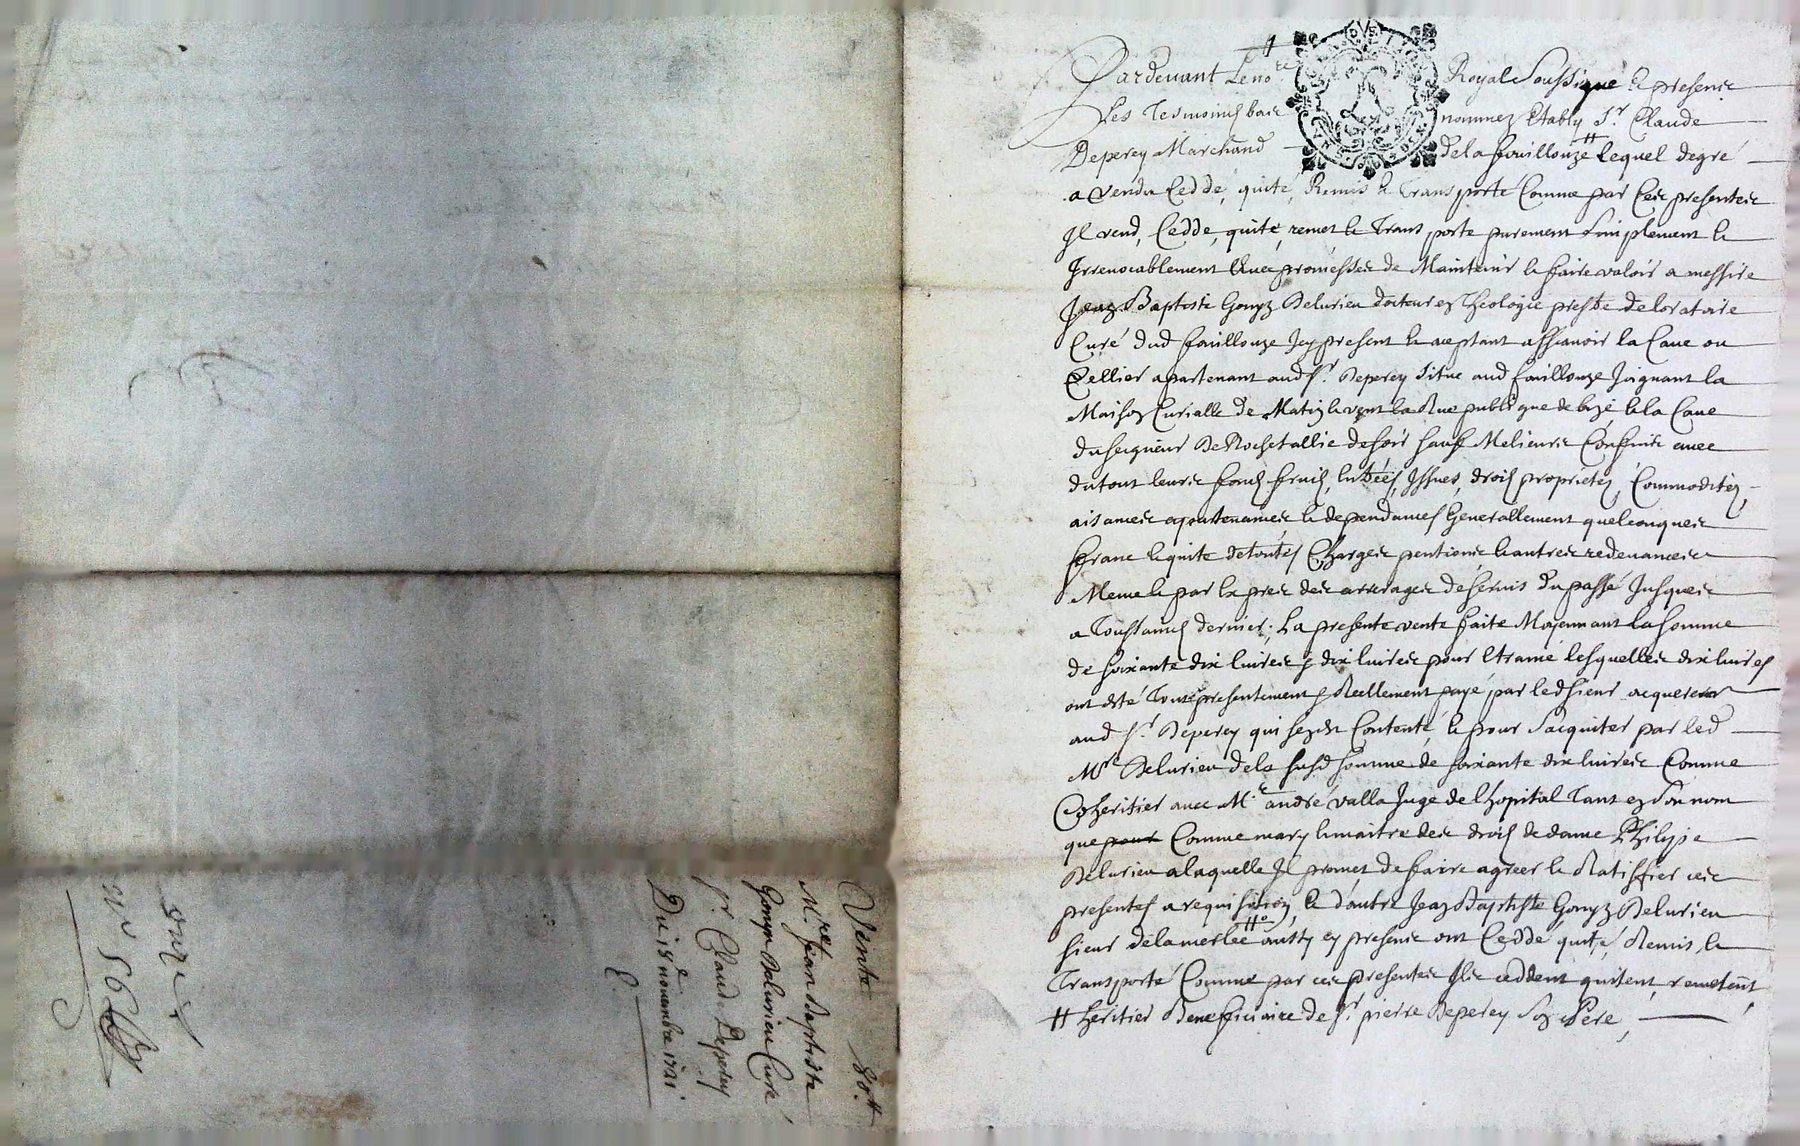 Vente 80#
Mre Jean Baptiste
Gonyn Delurieu Curé
Sr. Claud Deperey
Du 15e novembre 1721
E.
onze
no 56
Pardevant Leno.re Royal soussigné & presens
Les Tesmoins bas nommez Etably Sr. Claude
Deperey Marchand dela fouillouze # lequel degré
a vendu Ceddé, quité, Remis & Transporté Comme par Ces presentes
Il vend, Cedde, quite, remet & Transporte purement simplement &
Irrevocablement avec promesses de Maintenir & faire valoir a messire
Jean Baptiste Gonyn Delurieu docteur en Theologie prestre de loratoire
Curé dud fouillouze Icy present & aceptant assavoir la Cave ou
Cellier apartenant aud Sr. Deperey Situe aud fouillouze Joignant la
Maison Curialle de Matin & vent la Rue publique de bize & la Cave
du seigneur De Rochetallie de soir sauf Melieurs Confins avec
dutout leurs fonds fruits, entrées, Issues, droits proprietés, Commodités,
aisances apartenances & dependances Generallement quelconques
franc & quite de toutes Charges pentions & autres redevances
Meme & par exprés des arrerages de servis du passé Jusques
a Toussaints dernier; La presente vente faite Moyennant la somme
de soixante dix livres & dix livres pour Etraine lesquelles dix livres
ont esté Tout presentement & Reellement payé par led sieur acquereur
aud Sr. Deperey qui sen est Contenté, & pour Sacquiter par led
Mre Delurieu dela susd somme de soixante dix livres Comme
Coheritier avec Me. andré valla Juge de lhopital Tant en son nom
que pour Comme mary & maitre des droits de dame Philipe
Delurieu a laquelle Il promet de faire agréer & Ratiffier ces
presentes a requisition, & d'autre Jean Baptiste Gonyn Delurieu
sieur dela merlée aussy cy presens ont Ceddé quité, Remis &
Transporté Comme par ces presentes Ils ceddent quitent, remetent
# heritier Beneficiaire de Sr. pierre Deperey son Pere,